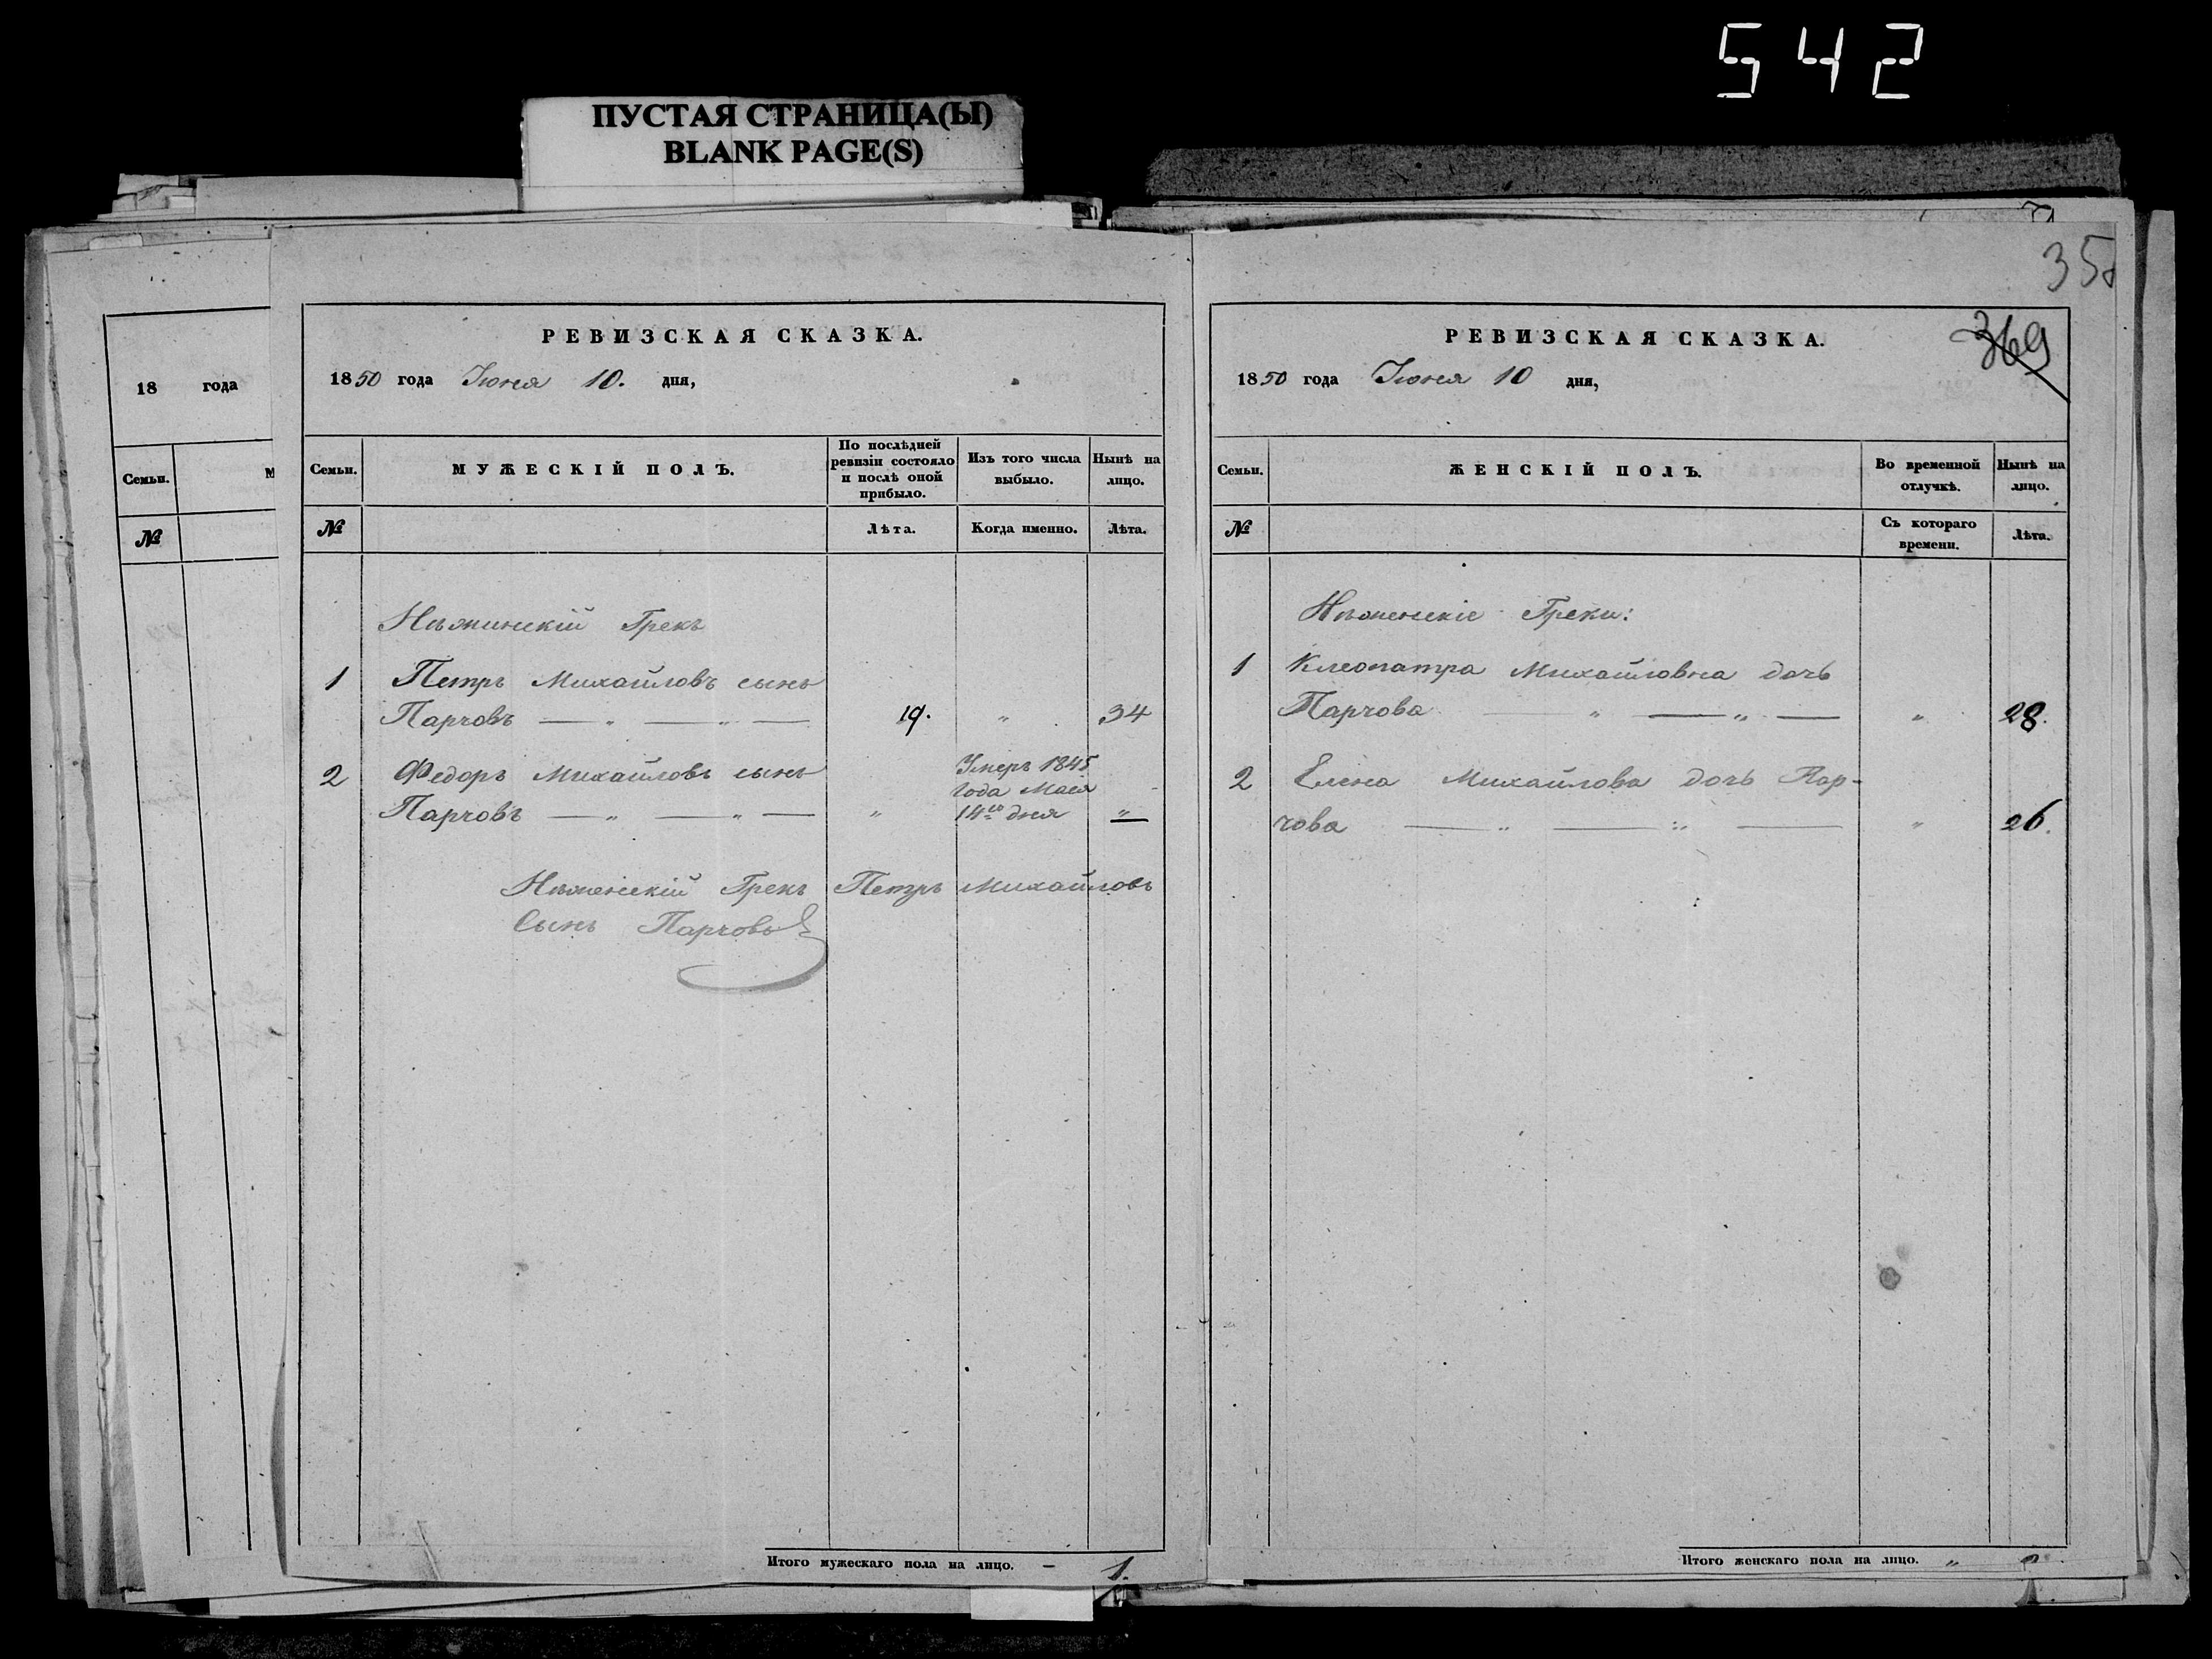 542
ПУСТАЯ СТРАНИЦА(Ы)
BLANK PAGE(S)
18 года
Семьи.
№
РЕВИЗСКАЯ СКАЗКА.
1850 года Іюня 10. дня,
Семьи.
МУЖЕСКІЙ ПОЛЪ.
По послѣдней ревизіи состояло и послѣ оной прибыло.
Изъ того числа выбыло.
Нынѣ на лицо.
№
Лѣта.
Когда именно.
Лѣта.
Нѣжинскій Грекъ
1 Петръ Михайловъ сынъ
Парчовъ — „ — „ — 19. „ 34
2 Федоръ Михайловъ сынъ
Умеръ 1845
года Маія
Парчовъ — „ — „ — „ 14го дня „
Нѣженскій Грекъ Петръ Михайловъ
Сынъ Парчовъ
Итого мужескаго пола на лицо. — 1.
35
369
РЕВИЗСКАЯ СКАЗКА.
1850 года Іюня 10 дня,
Семьи.
ЖЕНСКІЙ ПОЛЪ.
Во временной отлучкѣ.
Нынѣ на лицо.
№
Съ котораго времени.
Лѣта.
Нѣженскіе Греки:
1 Клеопатра Михайловна дочь
Парчова — „ — „ — „ 28.
2 Елена Михайлова дочь Пар-
чова — „ — „ — „ 26.
Итого женскаго пола на лицо. „ 2